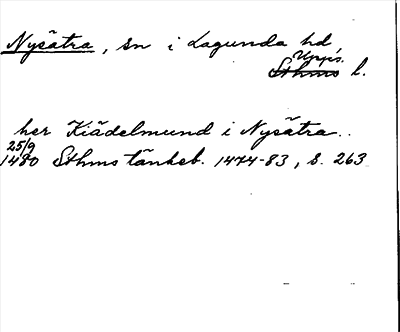 Nysätra, sn i Lagunda hd
Upps.
Sthms l.
her Kiädelmund i Nysätra.
25/9
1480 Sthms tänkeb. 1474-83, s. 263